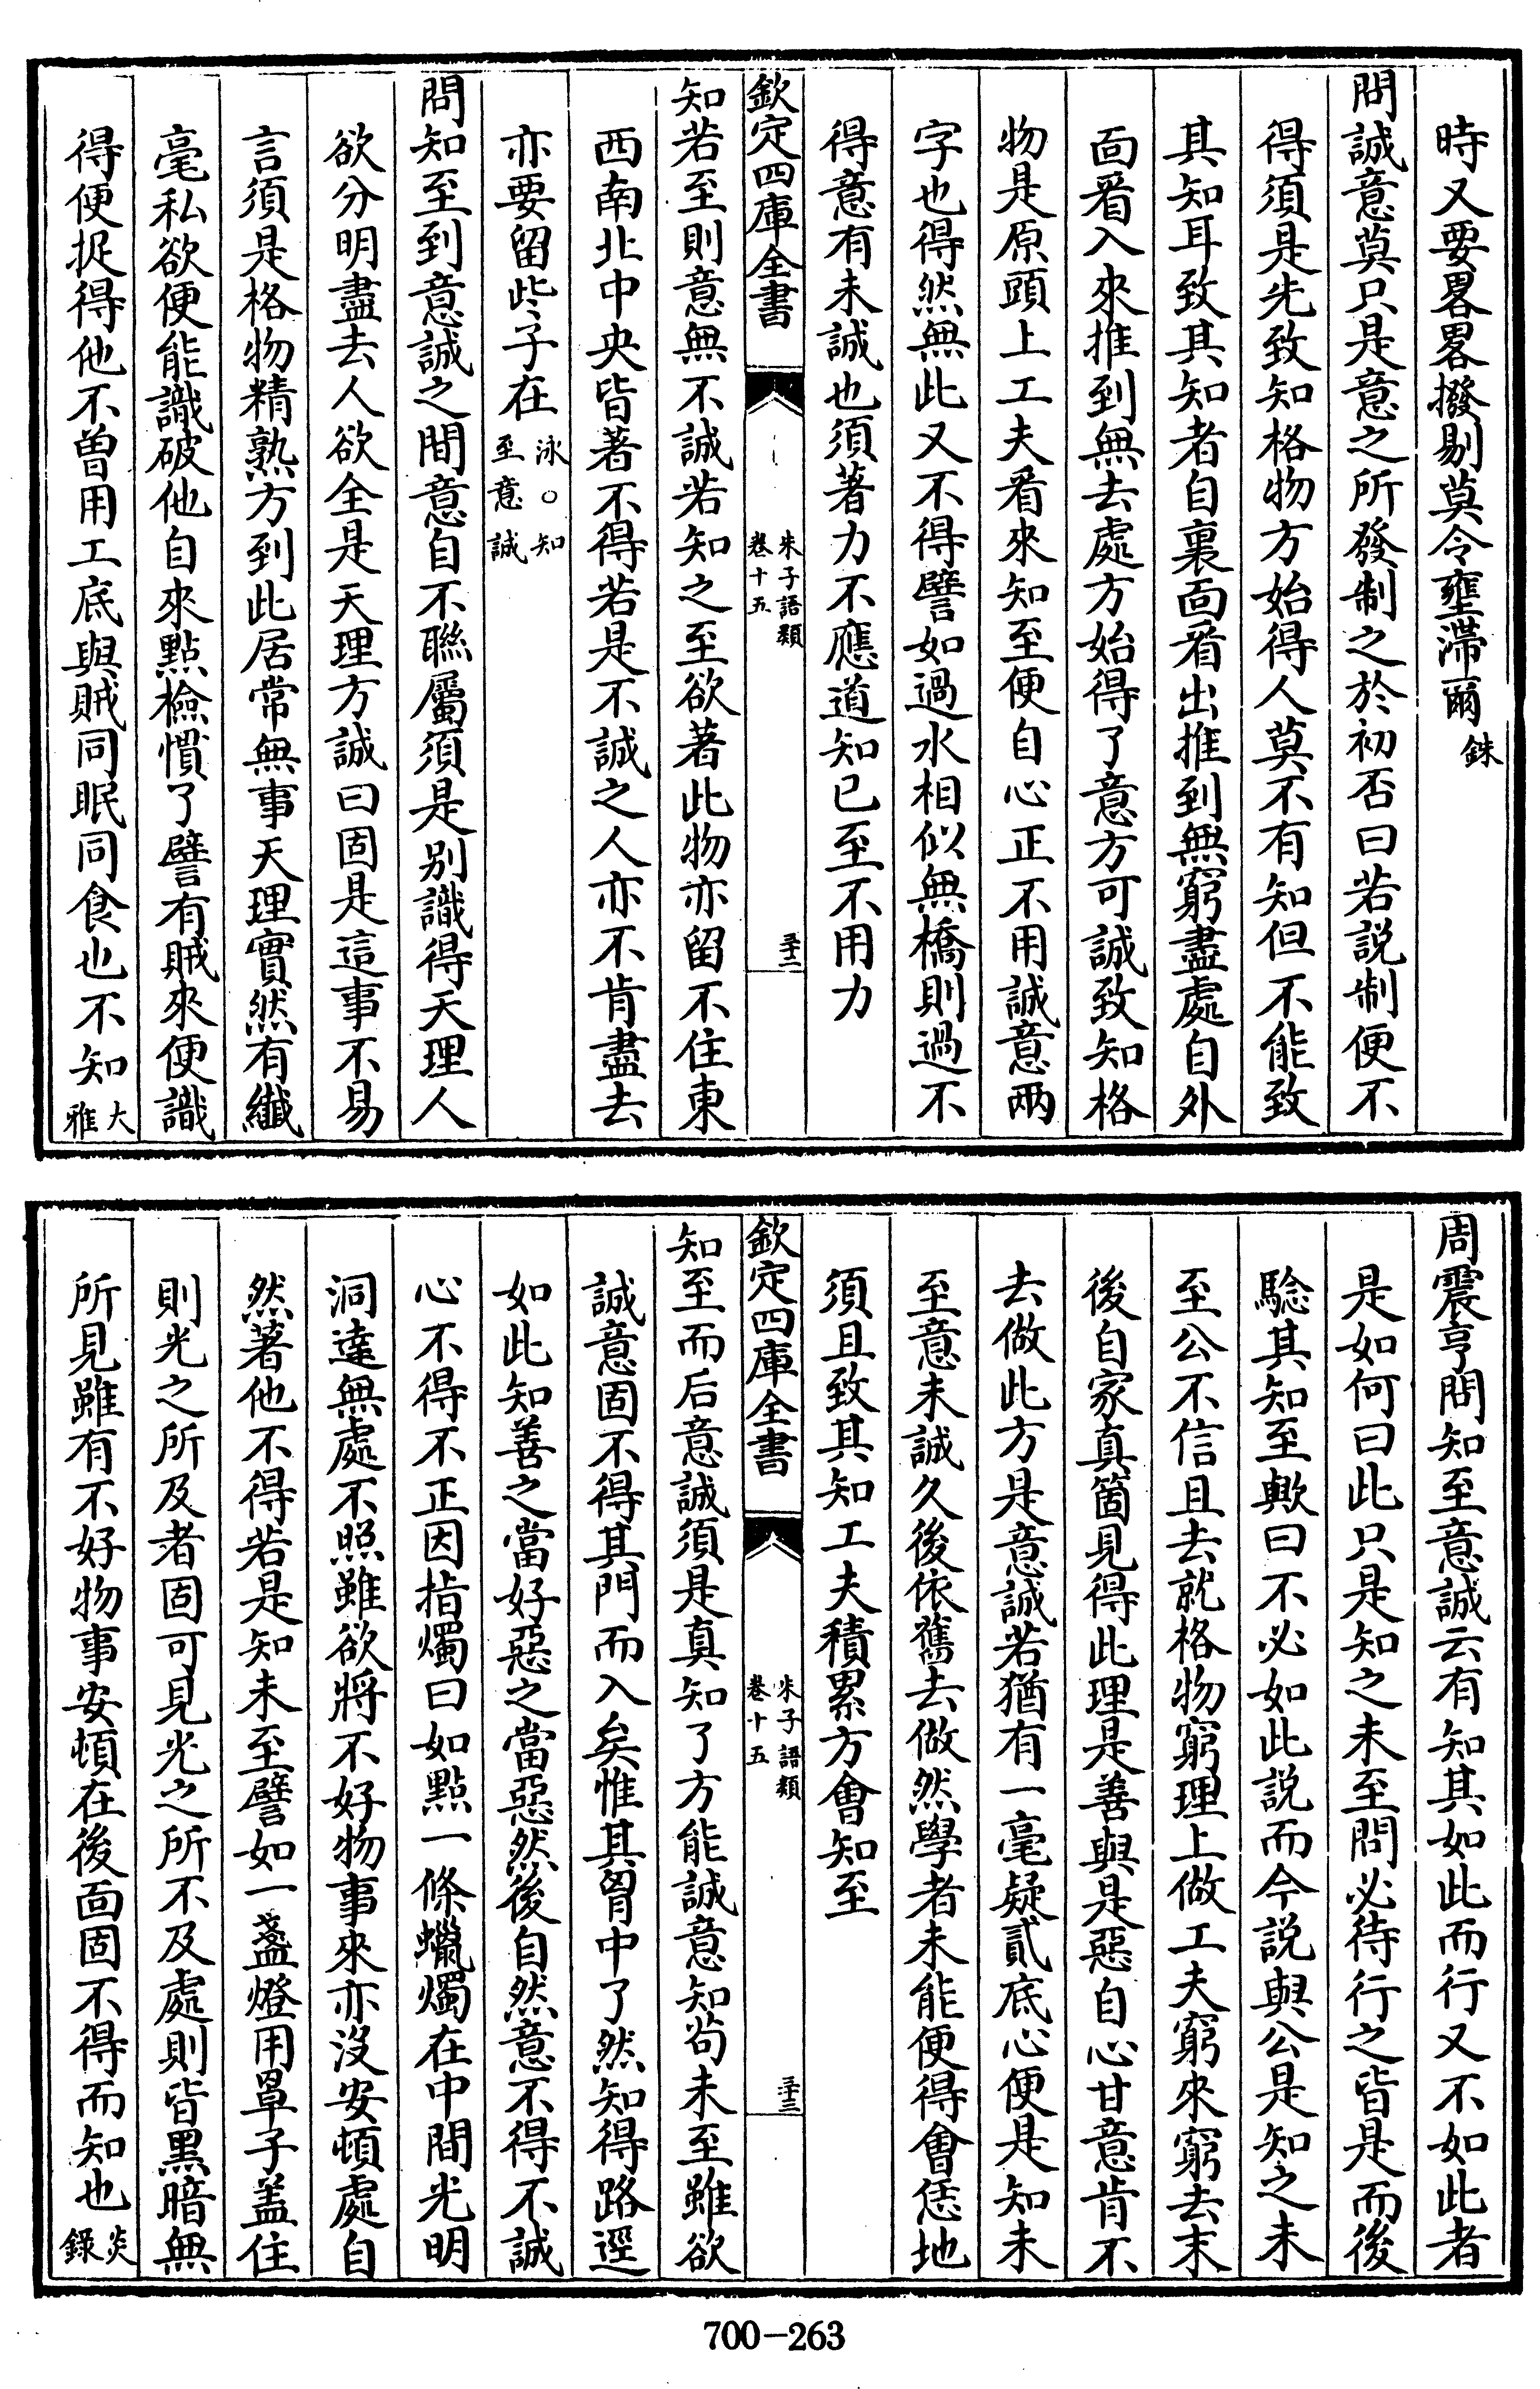 時又要畧畧撥剔莫令壅滯爾銖
問誠意莫只是意之所發制之於初否曰若説制便不
得須是先致知格物方始得人莫不有知但不能致
其知耳致其知者自裏面看出推到無窮盡處自外
面看入來推到無去處方始得了意方可誠致知格
物是原頭上工夫看來知至便自心正不用誠意兩
字也得然無此又不得譬如過水相似無橋則過不
得意有未誠也須著力不應道知已至不用力
欽定四庫全書
朱子語類
卷十五
三十二
知若至則意無不誠若知之至欲著此物亦留不住東
西南北中央皆著不得若是不誠之人亦不肯盡去
亦要留些子在泳○知至意誠
問知至到意誠之間意自不聯屬須是别識得天理人
欲分明盡去人欲全是天理方誠曰固是這事不易
言須是格物精熟方到此居常無事天理實然有纎
毫私欲便能識破他自來點檢慣了譬有賊來便識
得便捉得他不曾用工底與賊同眠同食也不知大雅
周震亨問知至意誠云有知其如此而行又不如此者
是如何曰此只是知之未至問必待行之皆是而後
騐其知至歟曰不必如此説而今説與公是知之未
至公不信且去就格物窮理上做工夫窮來窮去末
後自家真箇見得此理是善與是惡自心甘意肯不
去做此方是意誠若猶有一毫疑貳底心便是知未
至意未誠久後依舊去做然學者未能便得會恁地
須且致其知工夫積累方會知至
欽定四庫全書
朱子語類
卷十五
三十三
知至而后意誠須是真知了方能誠意知苟未至雖欲
誠意固不得其門而入矣惟其胷中了然知得路逕
如此知善之當好惡之當惡然後自然意不得不誠
心不得不正因指燭曰如點一條蠟燭在中間光明
洞達無處不照雖欲將不好物事來亦沒安頓處自
然著他不得若是知未至譬如一盞燈用罩子盖住
則光之所及者固可見光之所不及處則皆黑暗無
所見雖有不好物事安頓在後面固不得而知也炎錄
700-263